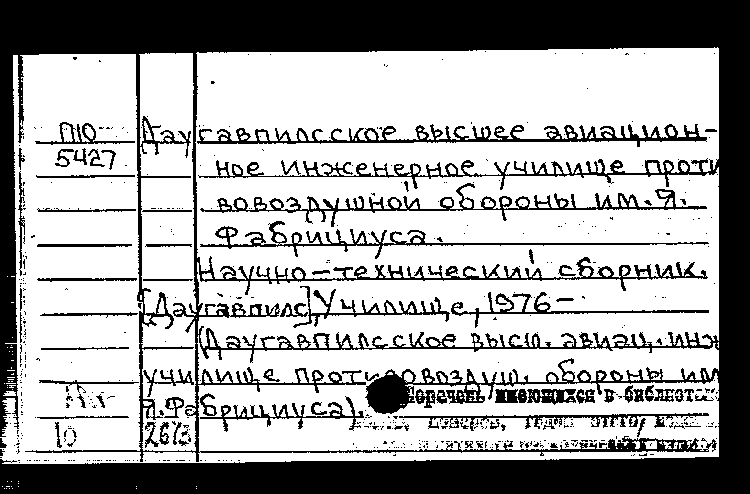 П10 Даугавпилсское высшее авиацион-
5427 ное инженерное училище проти
вовоздушной обороны им. Я.
Фабрициуса.
Научно-технический сборник.
[Даугавпилс], Училище, 1976-
(Даугавпилсское высш. авиац. инж
училище противовоздуш. обороны им
Я. Фабрициуса).
Перечень имеющихся в библиотеке
10 2613
номеров, годов